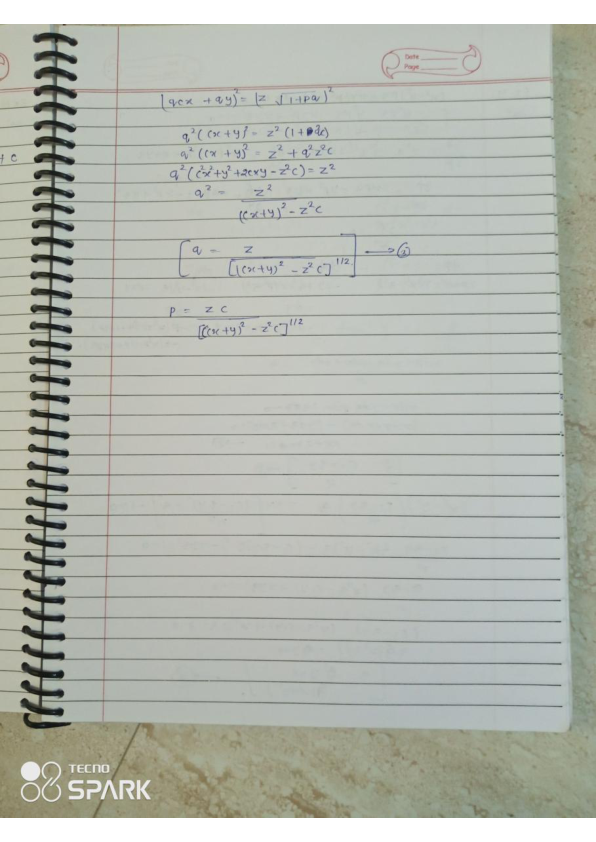 Date
Page
+ c
(qcx + qy)² = (z √1+pq)²
q² (cx+y)² = z² (1+q²c)
q² (cx+y)² = z² + q²z²c
q² (c²x²+y²+2cxy - z²c) = z²
q² = z²
(cx+y)² - z²c
[q = z
[(cx+y)² - z²c]^1/2] → ②
p = z c
[(cx+y)² - z²c]^1/2
TECNO
SPARK